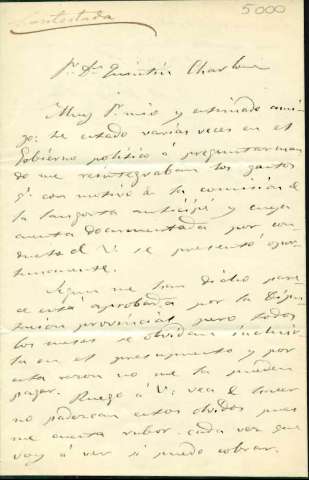 Contestada
5000
Sr. Dn. Quintín
Muy Sr. mio y estimado ami-
go: he estado varias veces en el
Gobierno político á preguntar cuan
do me reintegraban los gastos
qe. con motivo de la comisión de
la langosta anticipé y cuya
cuenta documentada por con-
ducto de V. se presentó opor-
tunamente.
Segun me han dicho pare-
ce está aprobada por la Dipu-
tacion provincial, pero todos
los meses se olvidan incluir
la en el presupuesto y por
esta razon no me la pueden
pagar. Ruego á V. vea de hacer
no padezcan estos olvidos pues
me cuesta rubor cada vez que
voy á ver si puedo cobrar.